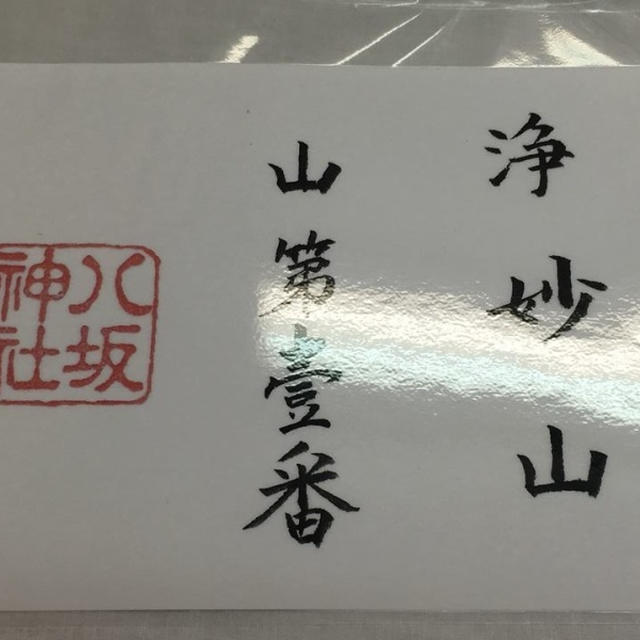 浄妙山
山第壹番
八坂
神社